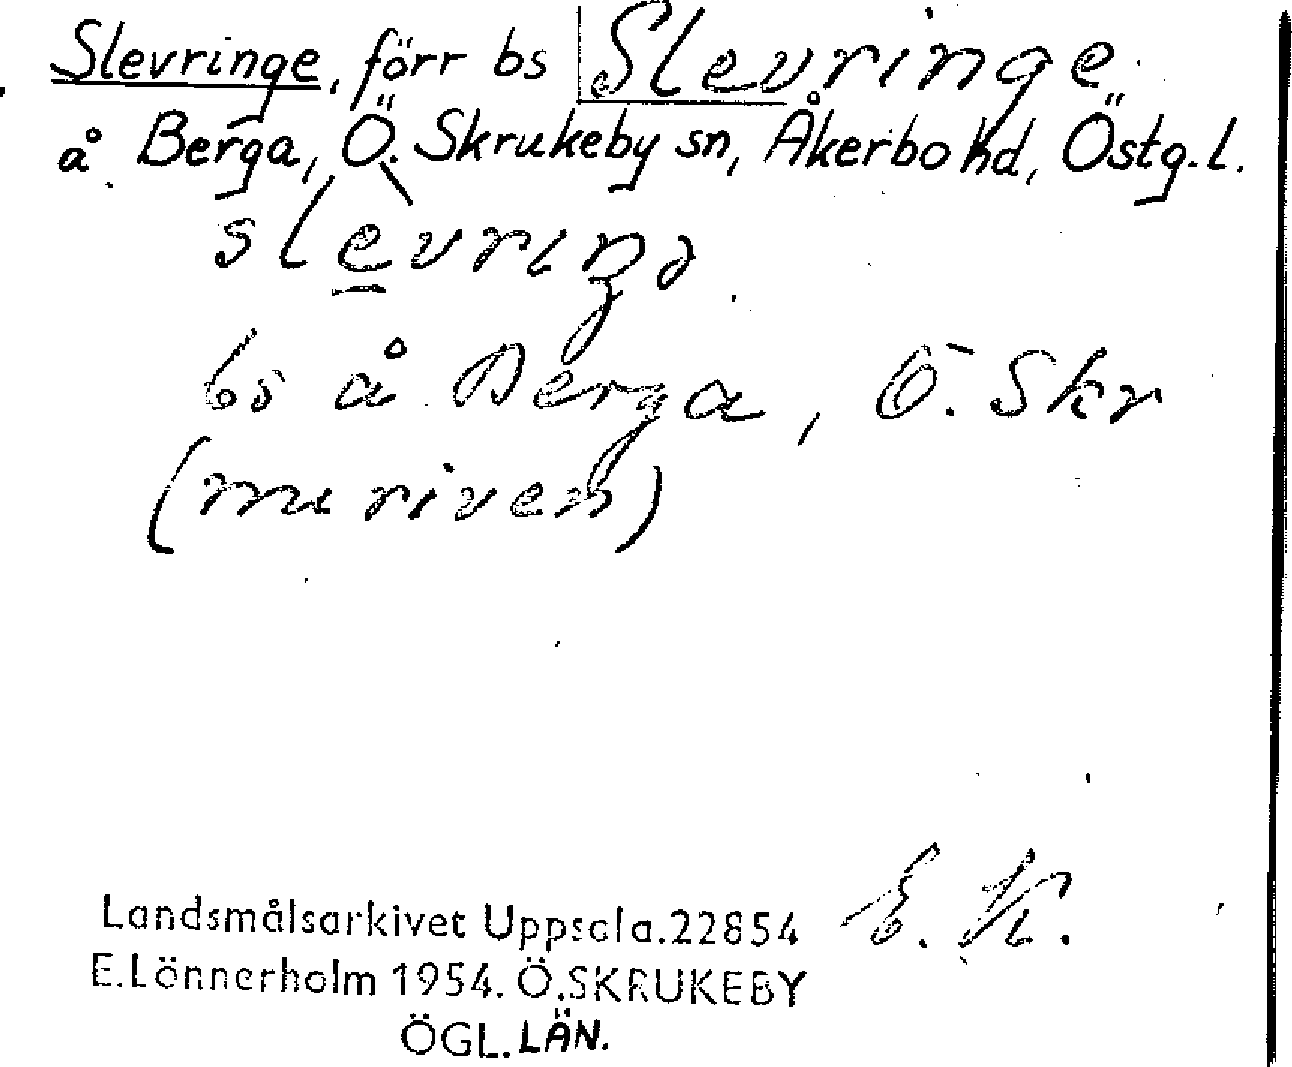 Slevringe, förr bs Slevringe
å Berga, Ö. Skrukeby sn, Åkerbo hd, Östg.l.
slèvrıŋə
bs å Berga, Ö. Skr
(nu riven)
E. K.
Landsmålsarkivet Uppsala.22854
E.Lönnerholm 1954. Ö.SKRUKEBY
ÖGL. LÄN.